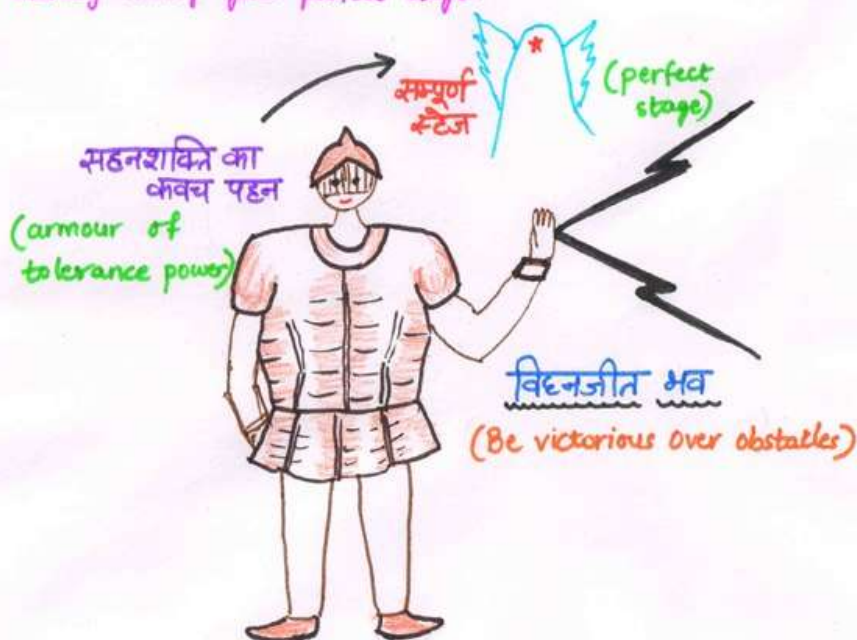 सम्पूर्ण
स्टेज
(perfect
stage)
सहनशक्ति का
कवच पहन
(armour of
tolerance power)
विघ्नजीत भव
(Be victorious over obstacles)